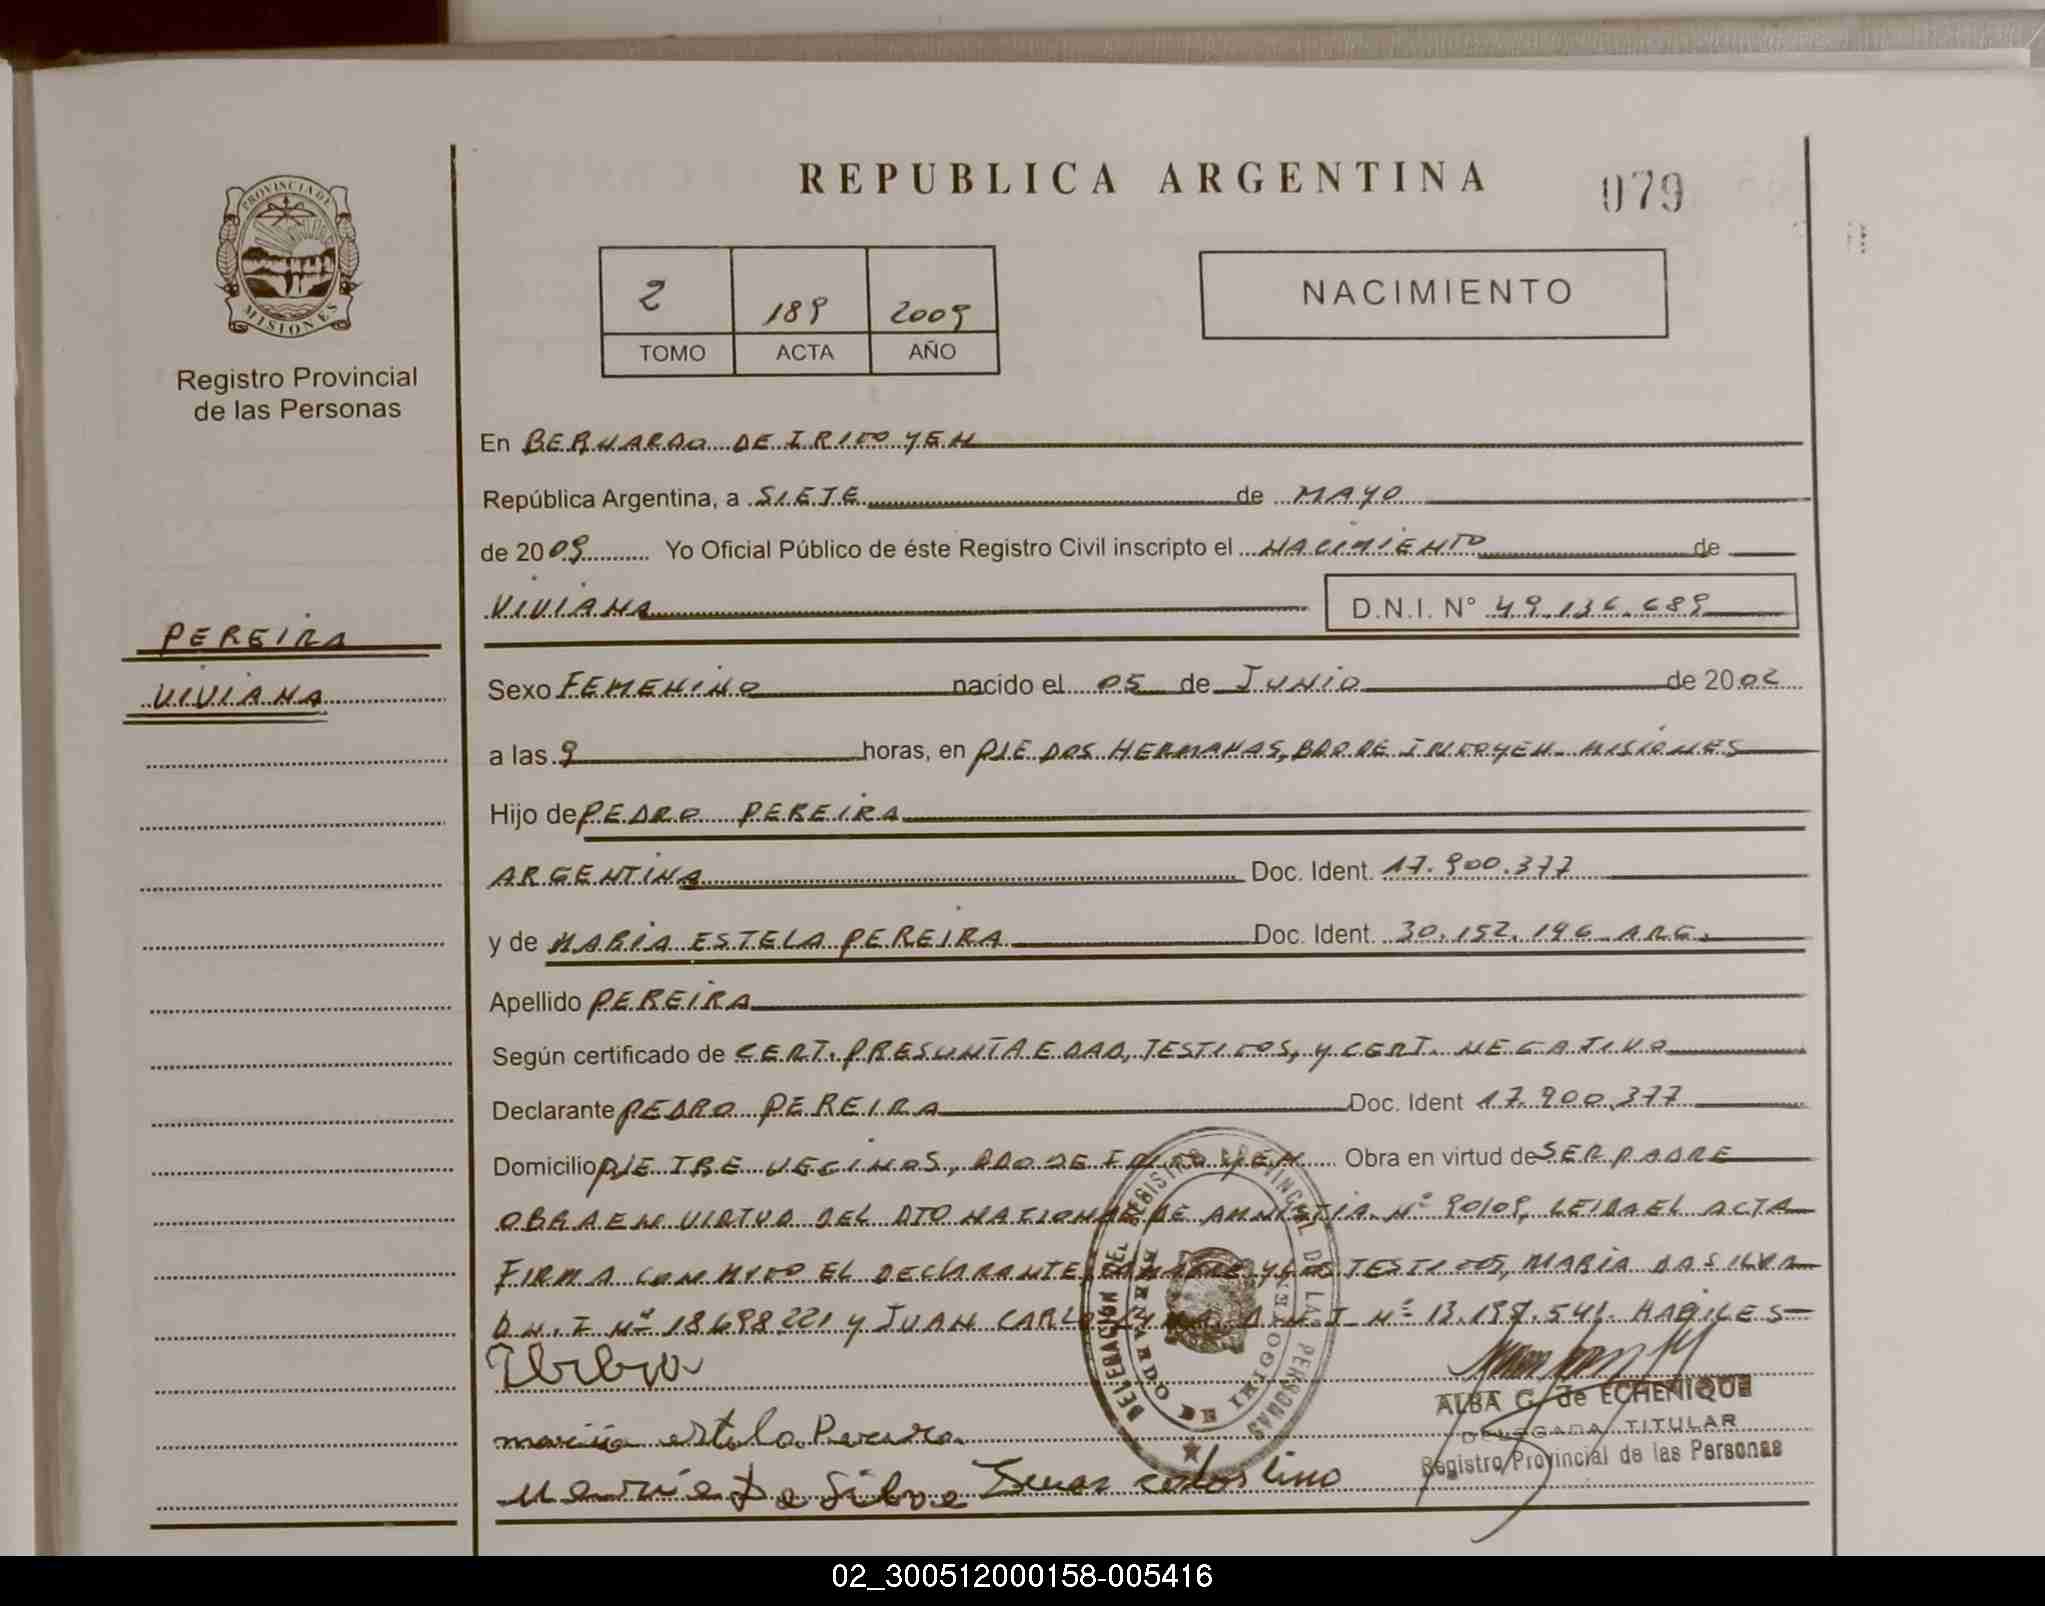 REPUBLICA ARGENTINA
079
PROVINCIA DE MISIONES
Registro Provincial
de las Personas
2 189 2009
TOMO ACTA AÑO
NACIMIENTO
En BERNARDO DE IRIGOYEN
República Argentina, a SIETE de MAYO
de 2009 Yo Oficial Público de éste Registro Civil inscripto el NACIMIENTO de
VIVIANA D.N.I. N° 49.136.689
PEREIRA
VIVIANA
Sexo FEMENINO nacido el 05 de JUNIO de 200
a las 9 horas, en PJE DOS HERMANAS, BDO DE IRIGOYEN MISIONES
Hijo de PEDRO PEREIRA
ARGENTINA Doc. Ident. 17.900.377
y de MARIA ESTELA PEREIRA Doc. Ident. 30.152.196 ARG.
Apellido PEREIRA
Según certificado de CERT. PRESUNTA EDAD, TESTIGOS, y CERT. NEGATIVO
Declarante PEDRO PEREIRA Doc. Ident 17.900.377
Domicilio PJE TRE VECINOS, BDO DE IRIGOYEN Obra en virtud de SER PADRE
OBRA EN VIRTUD DEL DTO NACIONAL DE AMNISTIA Nº 90/09, LEIDA EL ACTA
FIRMA CONMIGO EL DECLARANTE, LA MADRE Y LOS TESTIGOS, MARIA DA SILVA
D.N.I Nº 18698221 y JUAN CARLOS LIMA D.N.I Nº 13.197.541. HABILES
maria estela Pereira
Maria Da Silva Juan carlos lima
DELEGACION DEL REGISTRO PROVINCIAL DE LAS PERSONAS
BERNARDO DE IRIGOYEN
ALBA G. de ECHENIQUE
DELEGADA TITULAR
Registro Provincial de las Personas
02_300512000158-005416